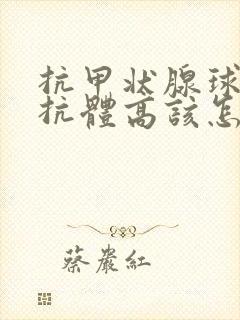 抗甲状腺球
抗體高該怎
蔡嚴紅